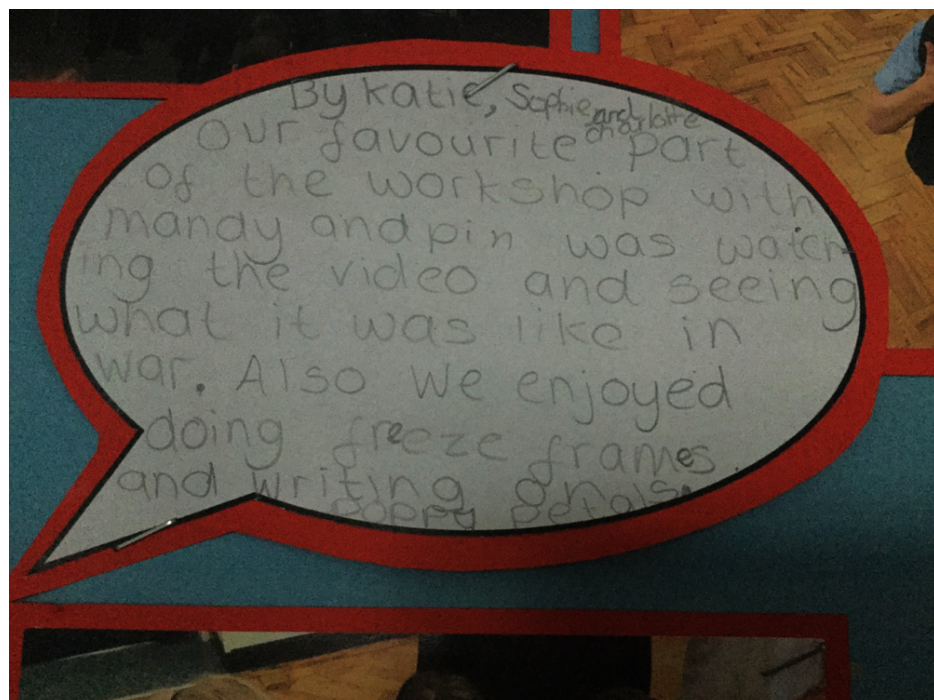 By katie, Sophie and charlotte
Our favourite part
of the workshop with
mandy and pin was watch-
ing the video and seeing
what it was like in
war. Also we enjoyed
doing freeze frames
and writing on
poppy petals.